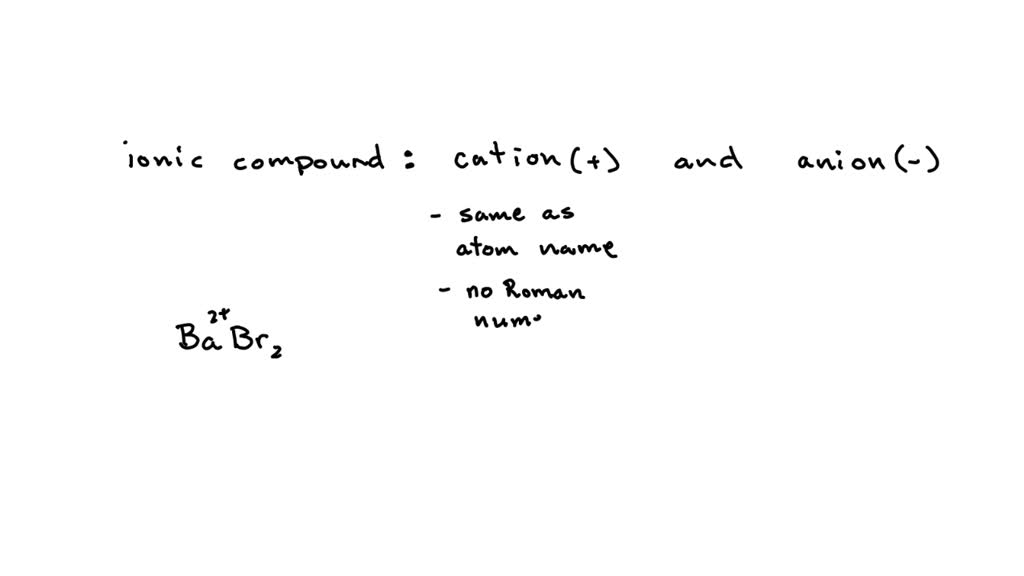 ionic compound: cation(+) and anion(-)
- same as
atom name
- no Roman
num.
Ba²⁺Br₂